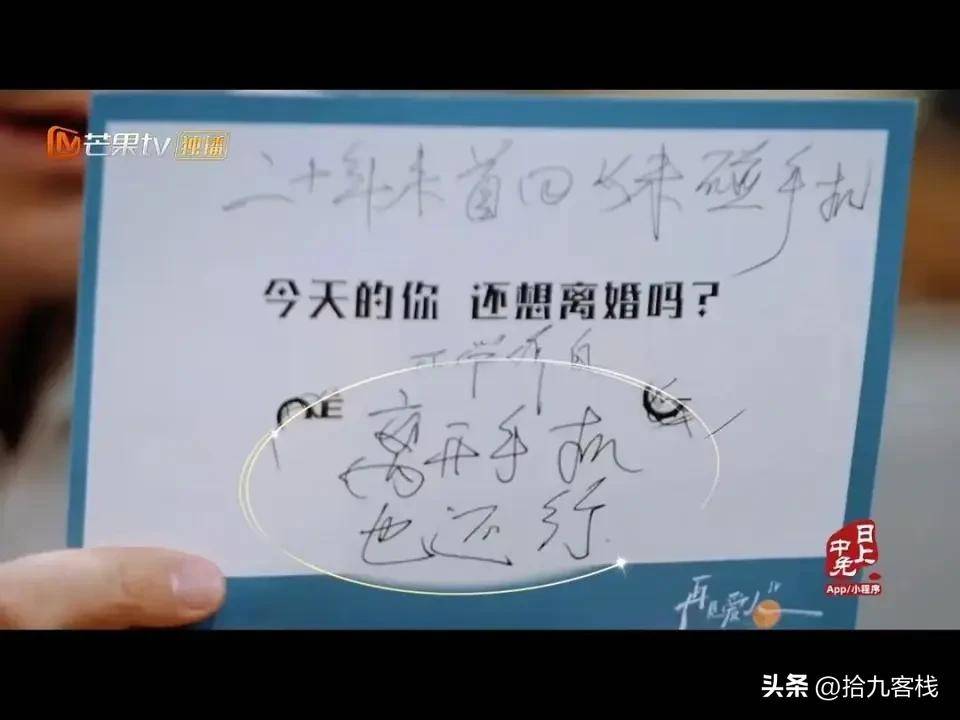 芒果tv 独播
二十年来首回 未碰手机
今天的你 还想离婚吗?
离开手机
也还行
日上
中免
App/小程序
再见爱人
头条 @拾九客栈